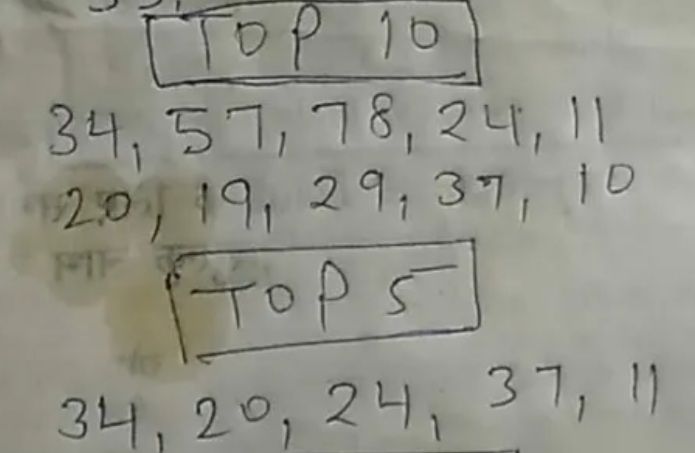 TOP 10
34, 57, 78, 24, 11
20, 19, 29, 37, 10
TOP 5
34, 20, 24, 37, 11